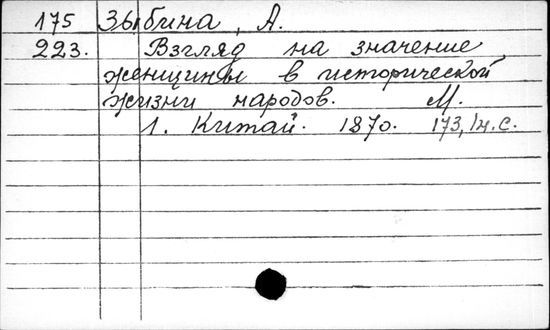 175 Зыбина, А.
223. Взгляд на значение
женщины в исторической
жизни народов. М.
1. Китай. 1870. 173, 1н.с.